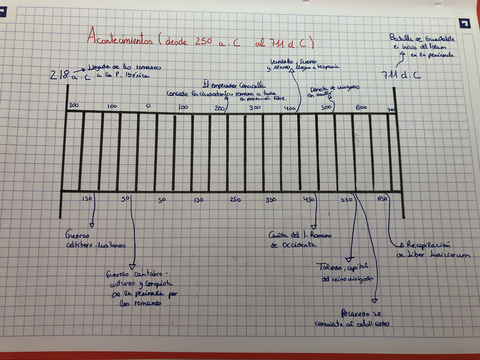 Acontecimientos (desde 250 a.C al 711 d.C)
Batalla de Guadalete
e inicio del Islam
en la península
711 d.C
218 a.C
Llegada de los romanos
a la P. Ibérica
Vándalos, suevos
y alanos, llegan a Hispania
El emperador Caracalla
concede la ciudadanía romana a toda
Derrota de visigodos
200 100 0 100 200 400 500 600 700
150 50 50 150 250 350 450 550 650
Guerras
celtíbero-lusitanas
Guerras cántabro-
astures y conquista
de la península por
los romanos
Caída del I. Romano
de Occidente
Toledo, capital
del reino visigodo
Recaredo se
convierte al catolicismo
Recopilación
de Liber Iudiciorum